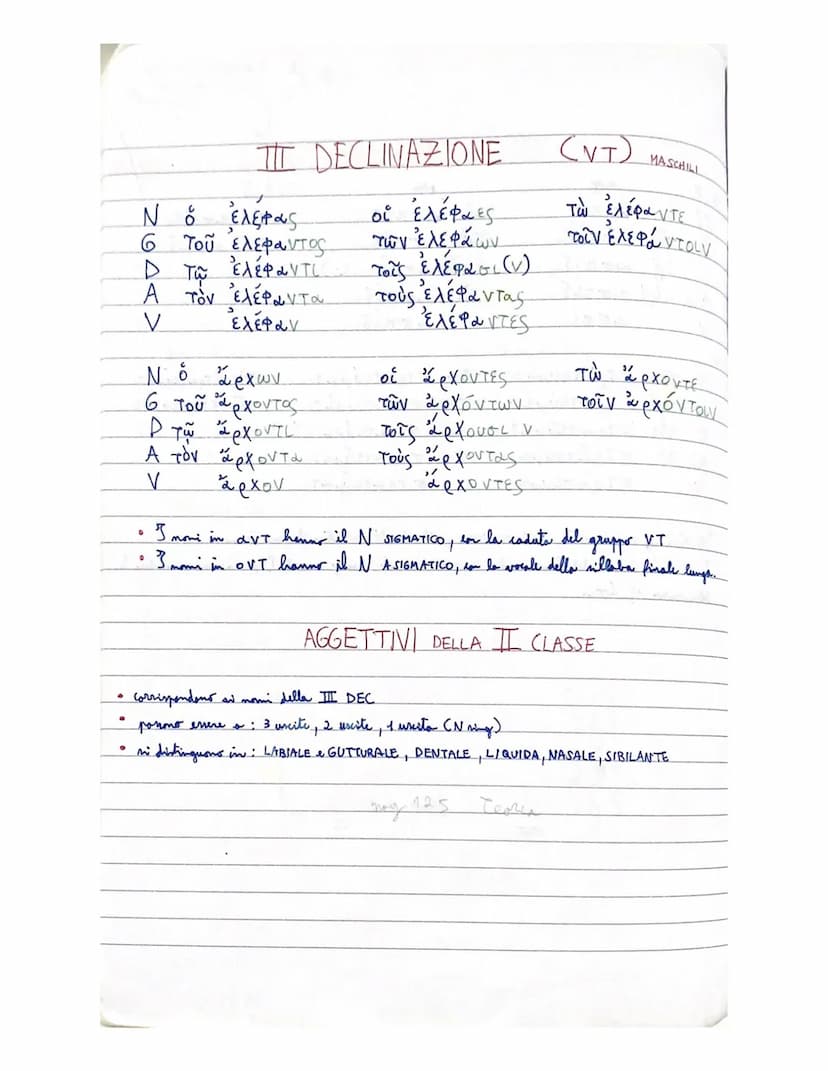 III DECLINAZIONE (ντ) MASCHILI
N ὁ ἐλέφας οἱ ἐλέφαες τὼ ἐλέφαντε
G τοῦ ἐλέφαντος τῶν ἐλεφάων τοῖν ἐλεφάντοιν
D τῷ ἐλέφαντι τοῖς ἐλέφασι(ν)
A τὸν ἐλέφαντα τοὺς ἐλέφαντας
V ἐλέφαν ἐλέφαντες
N ὁ ἄρχων οἱ ἄρχοντες τὼ ἄρχοντε
G τοῦ ἄρχοντος τῶν ἀρχόντων τοῖν ἀρχόντοιν
D τῷ ἄρχοντι τοῖς ἄρχουσι ν
A τὸν ἄρχοντα τοὺς ἄρχοντας
V ἄρχον ἄρχοντες
• I nomi in αντ hanno il N SIGMATICO, con la caduta del gruppo ντ
• I nomi in οντ hanno il N ASIGMATICO, con la vocale della sillaba finale lunga.
AGGETTIVI DELLA II CLASSE
• corrispondono ai nomi della III DEC
• possono essere a: 3 uscite, 2 uscite, 1 uscita (N sing)
• si distinguono in: LABIALE e GUTTURALE, DENTALE, LIQUIDA, NASALE, SIBILANTE
125 Teoria